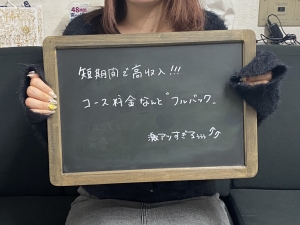 短期間で高収入!!!
コース料金なんと"フルバック"
激アツすぎるぅぅぅ⤴⤴